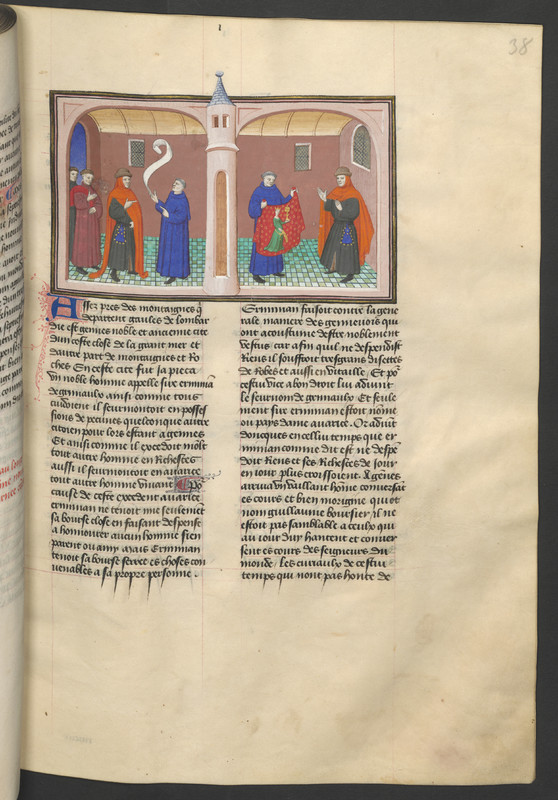 38
Assez pres des montaignes q̄
departent gaules de lombar
die est gennes noble et ancienne cite
dun coste close de la grant mer et
dautre part de montaignes et ro
ches En ceste cite fut ja pieca
vn noble homme appelle sire erminiā
de grimauldo ainsi comme tous
cuidoient il seurmontoit en posses
sions de pecunes quelconque autre
citoien pour lors estant a gennes
Et ainsi comme il excedoit mōlt
tout autre homme en richesses
aussi il seurmontoit en auarice
tout autre homme viuant Po
cause de ceste excedent auarice
erminian ne tenoit mie seulemēt
sa bourse close en faisant despense
a honnourer aucun homme sien
parent ou amy mais Erminian
tenoit sa bourse serree es choses con
uenables a sa propre personne .
Erminian faisoit contre la gene
rale maniere des genneuois qui
ont acoustume destre noblement
vestus car afin quil ne despendist
Riens il souffroit tresgrans disettes
de robes et aussi en vitaille Et po
cestui vice a bon droit lui aduint
le seurnom de grimauldo Et seule
ment sire erminian estoit nōme
ou pays dame auarice . Or aduīt
doncques en cellui temps que er
minian comme dit est ne despē
doit riens et ses richesses de jour
en iour plus croissoient A gēnes
arriua vn vaillant hōme conuersāt
es cours et bien morigine qui ot
nom guillaume boursier il ne
estoit pas samblable a ceulx qui
au iour duy hantent et conuer
sent es cours des seigneurs du
monde . Les curaulx de cestui
temps qui nont pas honte de